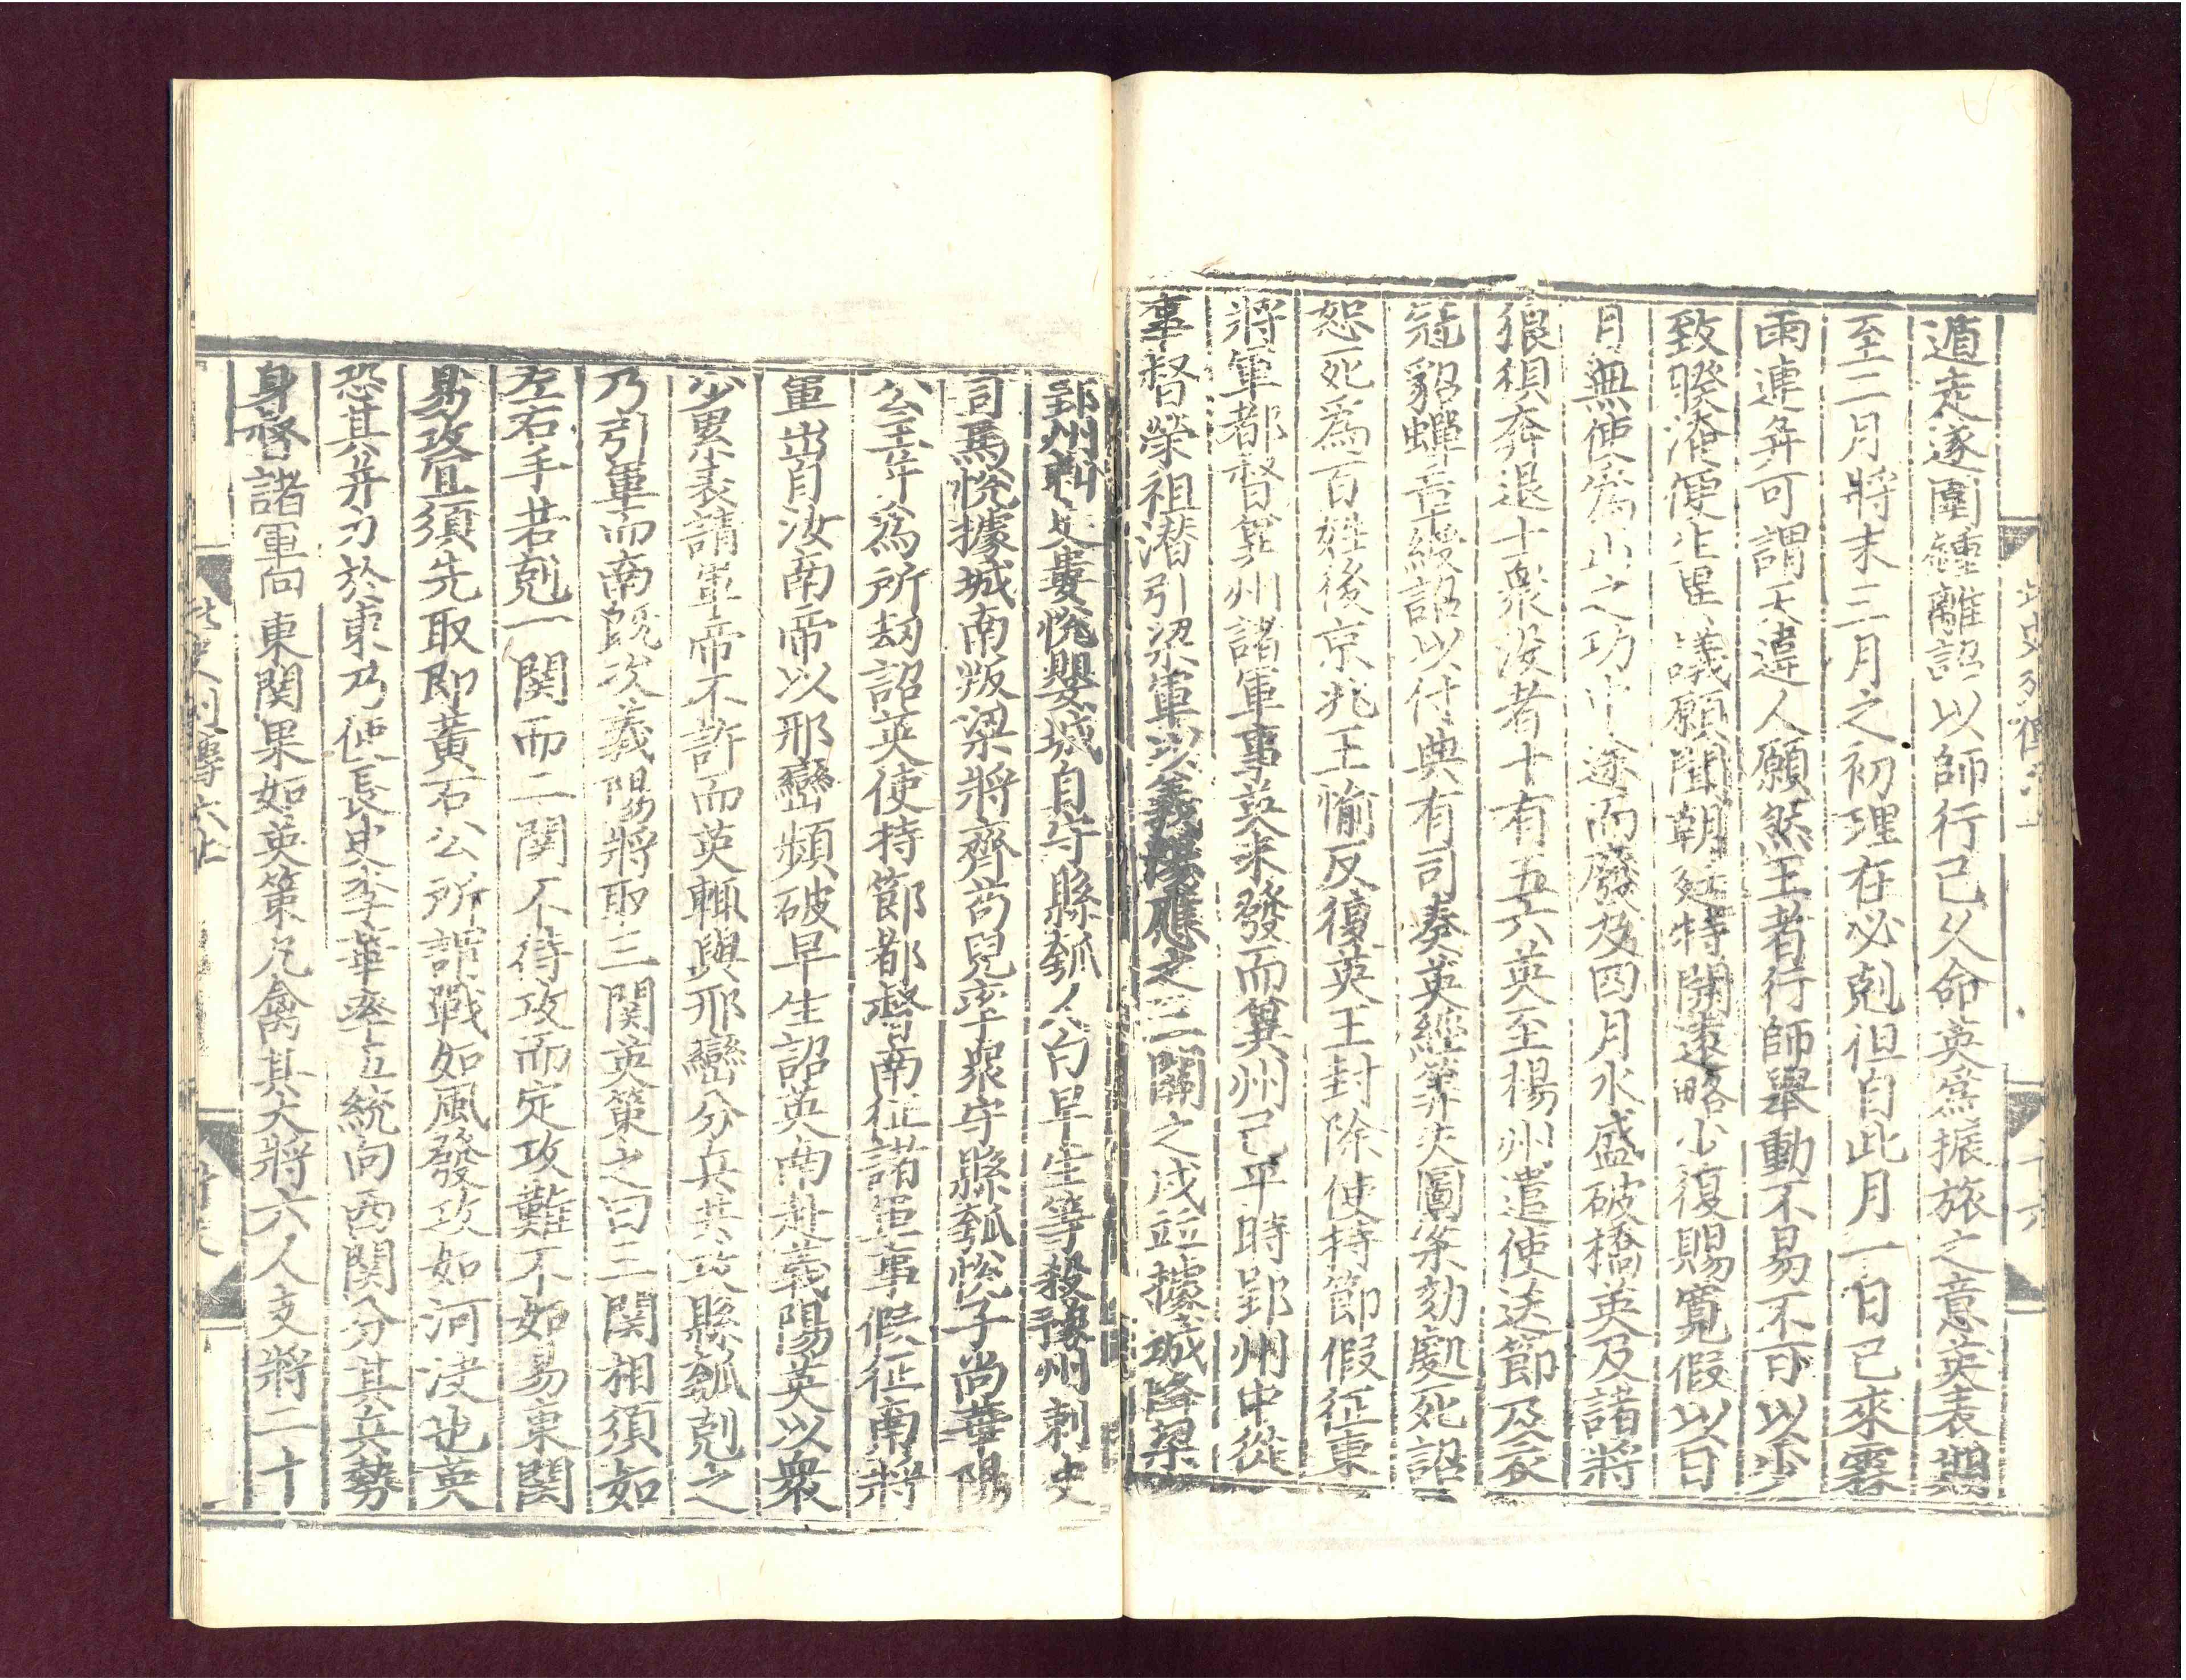 遁走遂圍鍾離詔以師行已久命英爲振旅之意英表期
至二月將末三月之初理在必剋但自此月一日已來霖
雨連并可謂天違人願然王者行師舉動不易不可以少
致睽淹便生異議願聞朝廷特開遠略少復賜寬假以日
月無使爲山之功中途而廢及四月水盛破橋英及諸將
狼狽奔退士衆没者十有五六英至楊州遣使送節及衣
冠貂蟬章綬詔以付典有司奏英經筭失圖案劾處死詔
恕死爲百姓後京兆王愉反復英王封除使持節假征東
將軍都督冀州諸軍事英未發而冀州已平時郢州中從
事督榮祖潜引梁軍以義陽應之三關之戍並據城降梁
郢州刺史婁悅嬰城自守縣瓠人白早生等殺豫州刺史
司馬悅據城南叛梁將齊苟兒率衆守縣瓠悅子尚華陽
公主并爲所劫詔英使持節都督南征諸軍事假征南將
軍出自汝南帝以邢巒頻破早生詔英南赴義陽英以衆
少累表請軍帝不許而英輒與邢巒分兵共攻縣瓠剋之
乃引軍而南既次義陽將取三関英策之曰三関相須如
左右手若剋一関而二関不待攻而定攻難不如易東関
易攻宜須先取即黃石公所謂戰如風發攻如河决也英
恐其并力於東乃使長史李華率五統向西関分其兵勢
身督諸軍向東関果如英策凡禽其大將六人支將二十